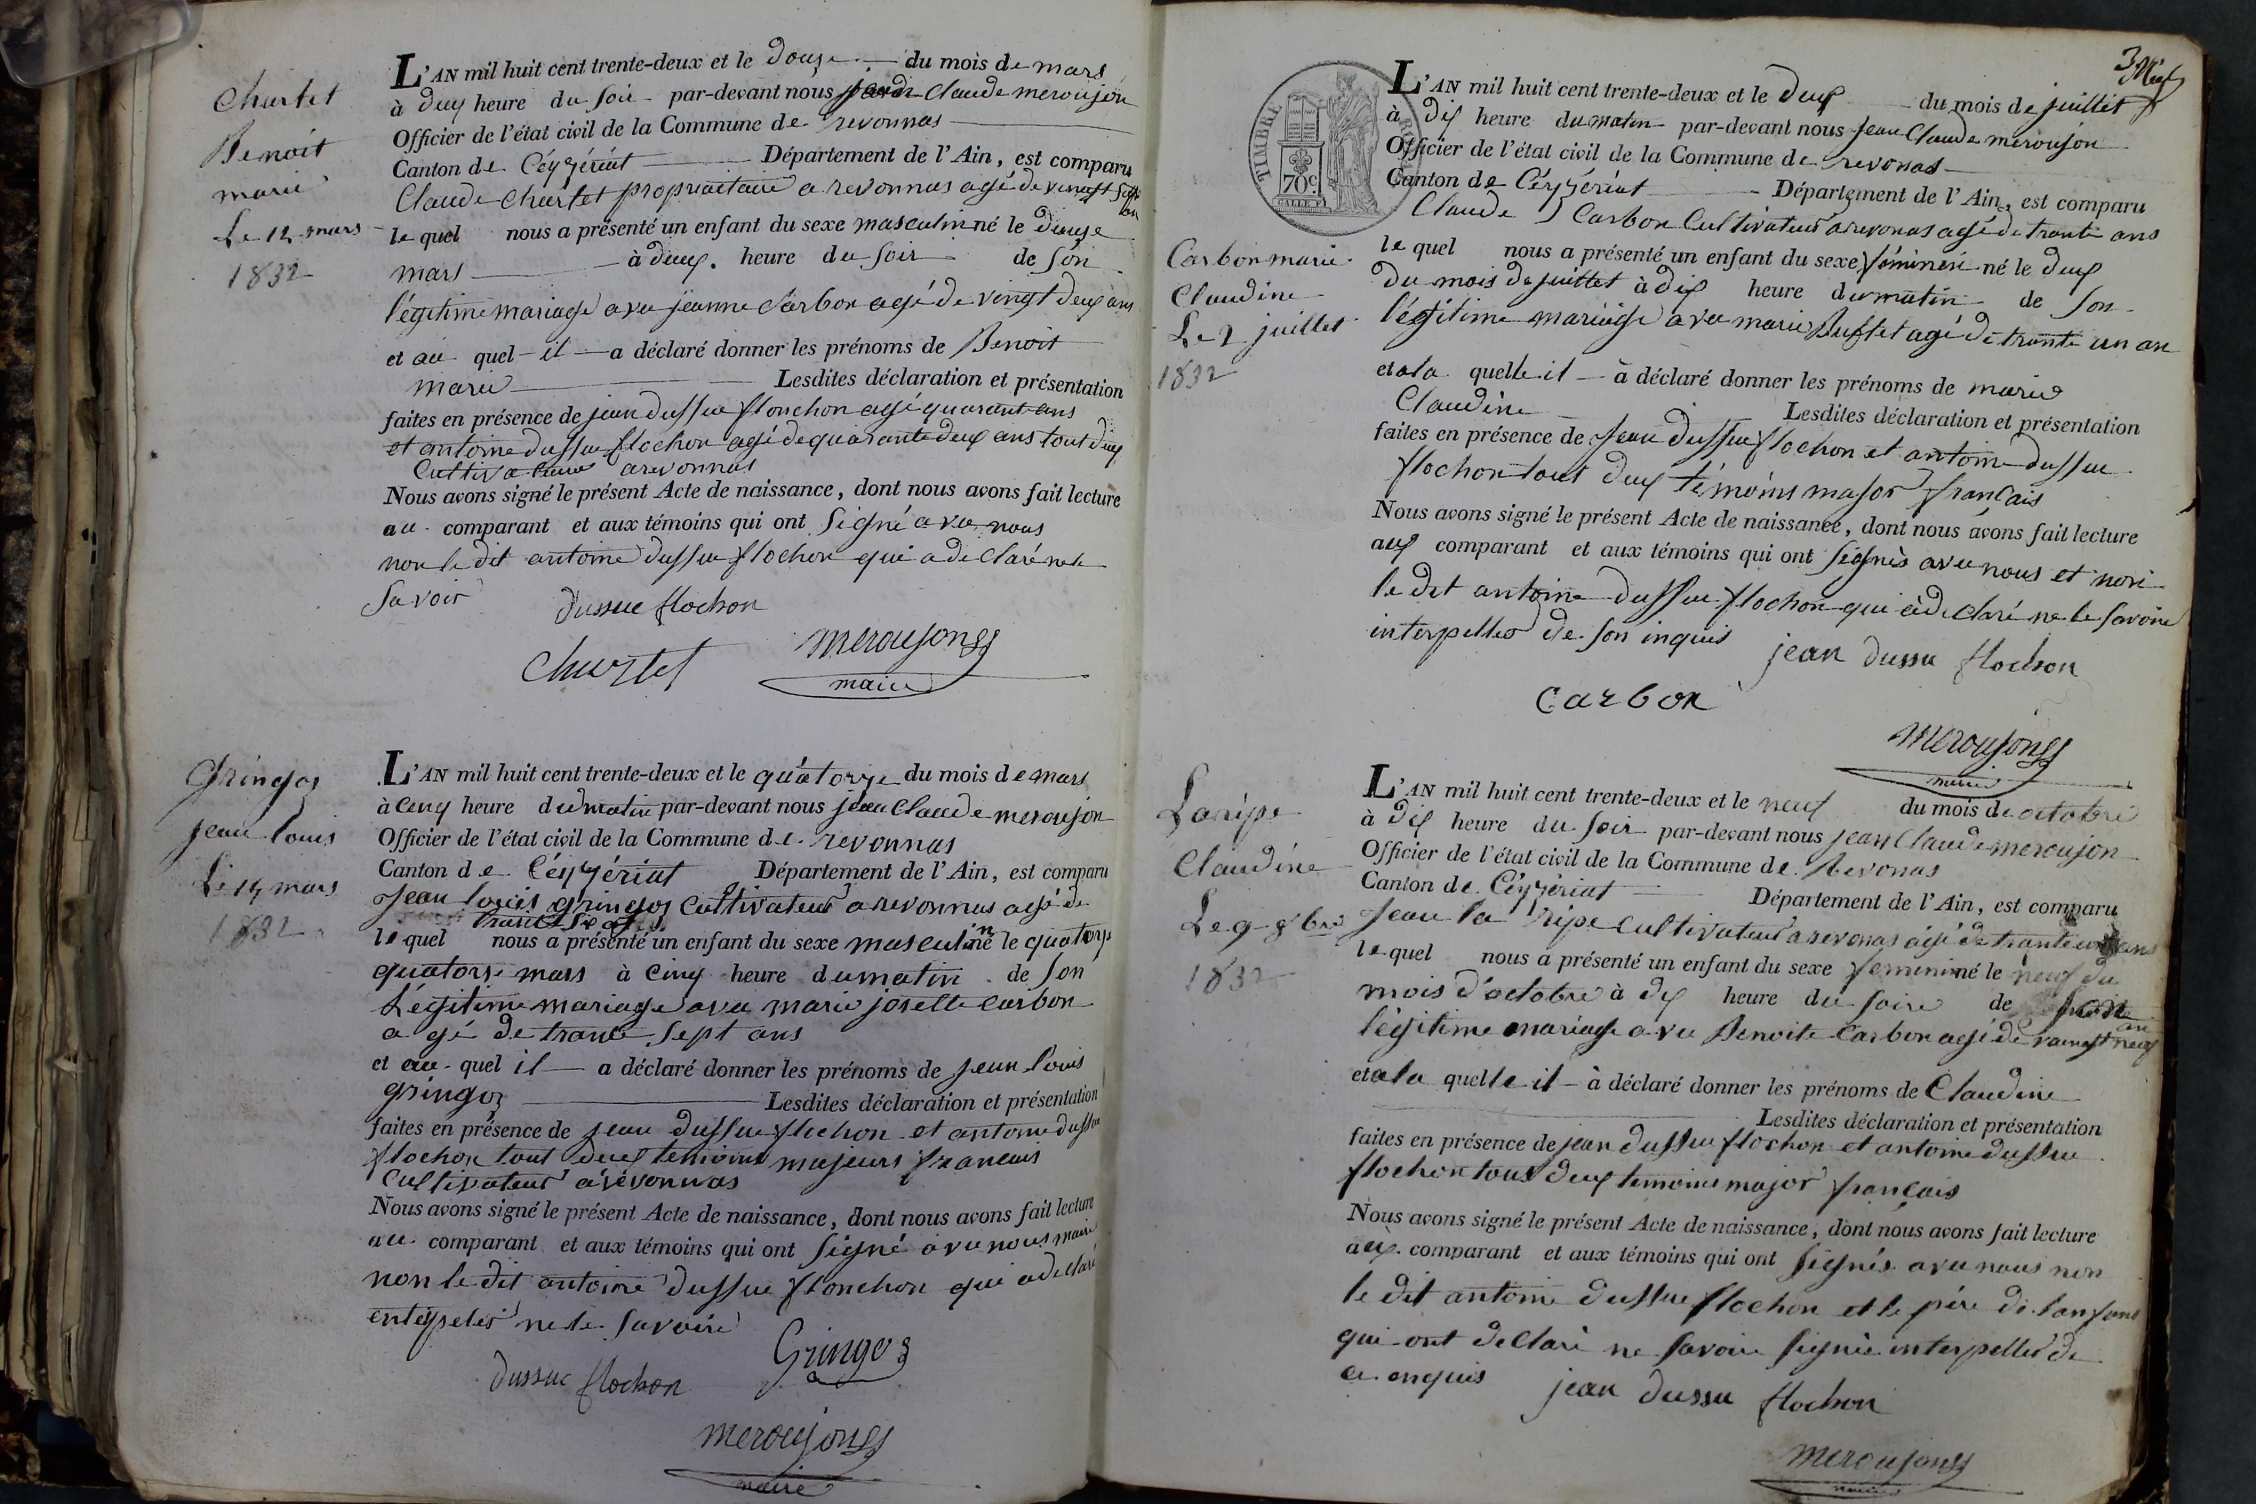 Chartet
Benoit
marie
Le 12 mars
1832
L'AN mil huit cent trente-deux et le douze du mois de mars
à deux heure du soir par-devant nous jean Claude meroujon
Officier de l'état civil de la Commune de revonnas
Canton de Céyzériat Département de l'Ain, est comparu
Claude Chartet propriaitaire a revonnas agé de vingt sept an
le quel nous a présenté un enfant du sexe masculin né le douze
mars à deux heure du soir de son
légitime mariage avec jeanne Carbon agé de vingt deux ans
et au quel il a déclaré donner les prénoms de Benoit
marie Lesdites déclaration et présentation
faites en présence de jean dussue flonchon agé quarant ans
et antoine dussue flochon agé de quarante deux ans tout deux
Cultivateur a revonnas
Nous avons signé le présent Acte de naissance, dont nous avons fait lecture
au comparant et aux témoins qui ont signé avec nous
non le dit antoine dussue flochon qui a de claré ne le
savoir
dussuc flochon
Chartet
meroujon
maire
Gringoz
jean louis
Le 14 mars
1832
L'AN mil huit cent trente-deux et le quatorze du mois de mars
à cinq heure du matin par-devant nous jean Claude meroujon
Officier de l'état civil de la Commune de revonnas
Canton de Céyzériat Département de l'Ain, est comparu
Jean louis gringoz cultivateur a revonnas agé de
trante six ans
le quel nous a présenté un enfant du sexe masculin né le quatorze
quatorze mars à cinq heure du matin de son
Légitime mariage avec marie josette Carbon
a gé de trante sept ans
et au quel il a déclaré donner les prénoms de jean louis
gringoz Lesdites déclaration et présentation
faites en présence de jean dussue flochon et antoine dussue
flochon tout deux temoins majeurs francais
Cultivateur a révonnas
Nous avons signé le présent Acte de naissance, dont nous avons fait lecture
au comparant et aux témoins qui ont signé avec nous maire
non le dit antoine dussue flonchon qui a de claré
ne le savoire
Gringoz
dussuc flochon
meroujon
maire
TIMBRE
70c
L'AN mil huit cent trente-deux et le deux du mois de juillet
à dix heure du matin par-devant nous jean Claude meroujon
Officier de l'état civil de la Commune de revonas
Canton de Céyzériat Département de l'Ain, est comparu
Claude Carbon Cultivateur a revonas agé de trante ans
Carbon marie
Claudine
Le 2 juillet
1832
le quel nous a présenté un enfant du sexe féminin né le deux
du mois de juillet à dix heure du matin de son
légitime mariage avec marie Buffet agé de trante un an
et a la quelle il à déclaré donner les prénoms de marie
Claudine Lesdites déclaration et présentation
faites en présence de Jean dussue flochon et antoine dussue
flochon tout deux témoins major français
Nous avons signé le présent Acte de naissance, dont nous avons fait lecture
aux comparant et aux témoins qui ont signés avec nous et non
le dit antoine dussue flochon qui à de claré ne le savoire
interpeller de son inquis
jean dussu flochon
carbon
meroujon
maire
Laripe
Claudine
Le 9 8bre
1832
L'AN mil huit cent trente-deux et le neuf du mois de octobre
à dix heure du soir par-devant nous jean Claude meroujon
Officier de l'état civil de la Commune de Revonas
Canton de Céyzériat Département de l'Ain, est comparu
Jean la ripe cultivateur a revonas agé de trante un ans
le quel nous a présenté un enfant du sexe feminin né le neuf du
mois d'octobre à dix heure du soire de son
légitime mariage avec Benoite Carbon agé de vaingt neuf an
et a la quelle il à déclaré donner les prénoms de Claudine
Lesdites déclaration et présentation
faites en présence de jean dussue flochon et antoine dussue
flochon tous deux temoins major français
Nous avons signé le présent Acte de naissance, dont nous avons fait lecture
aux comparant et aux témoins qui ont signés avec nous non
le dit antoine dussue flochon et le pére de lanfans
qui ont declaré ne savoire signér interpeller de
ce enquis
jean dussu flochon
meroujon
maire